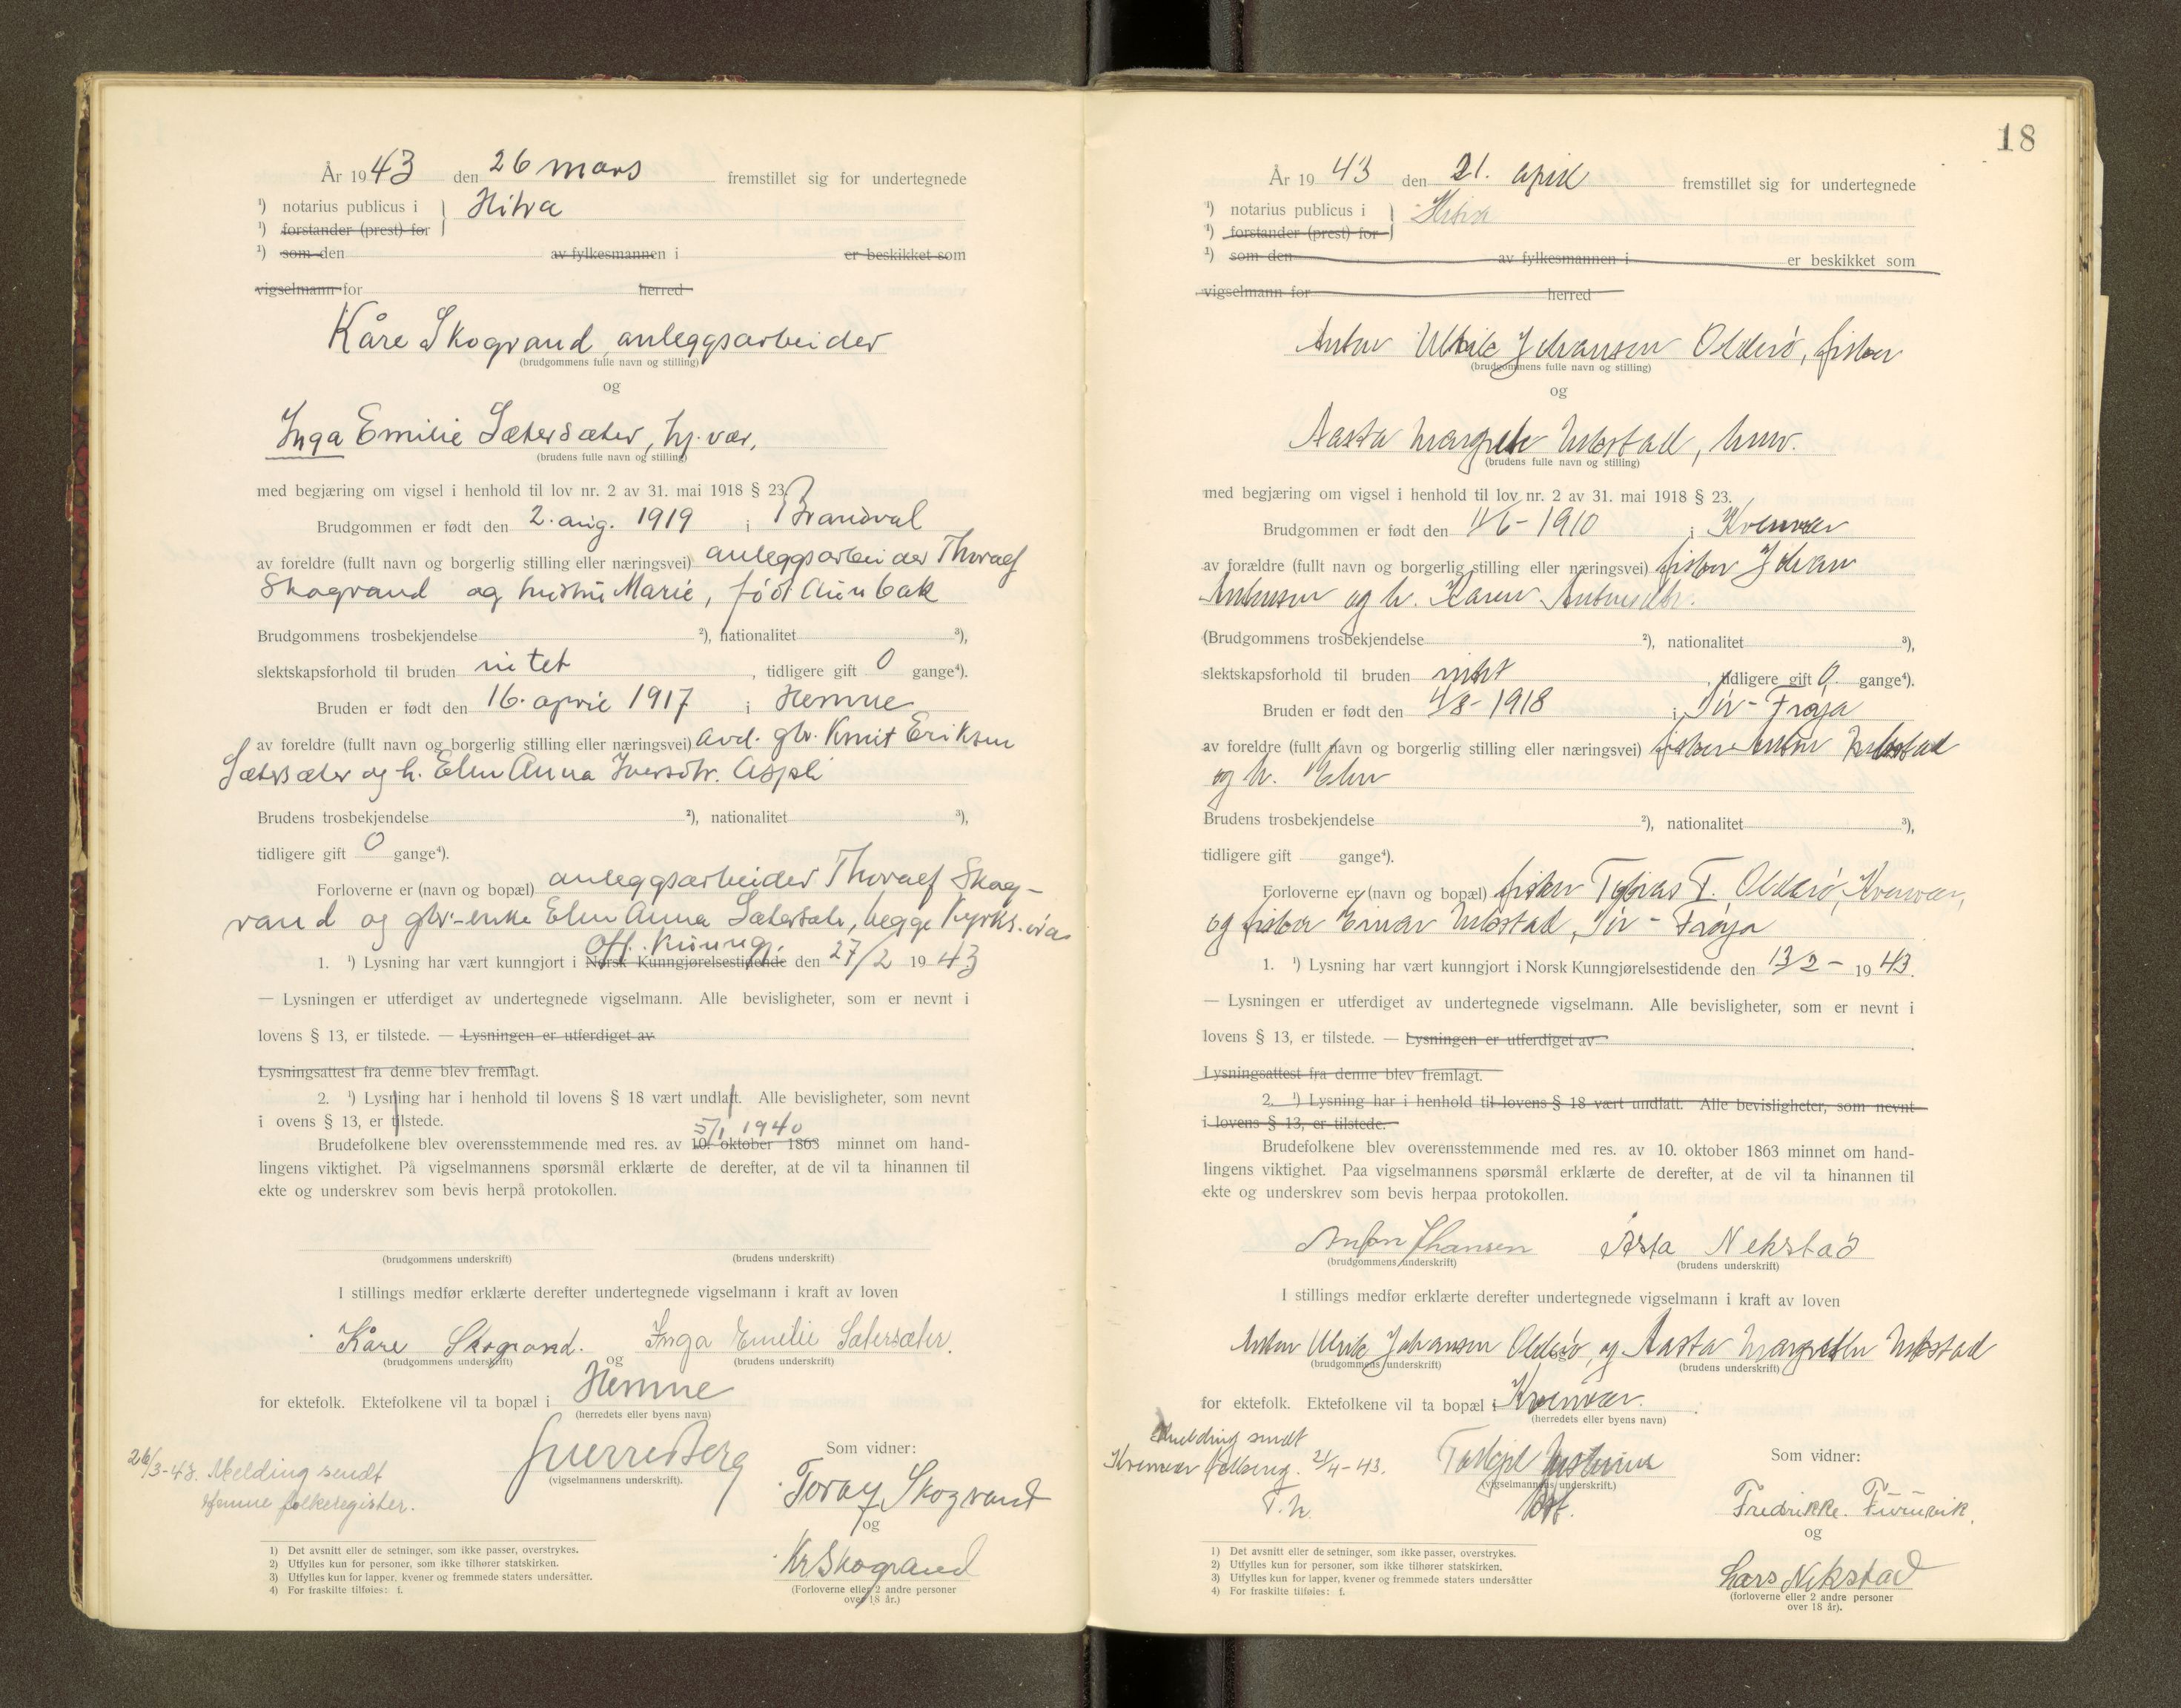 År 1943 den 26 mars fremstillet sig for undertegnede
¹) notarius publicus i } Hitra
¹) forstander (prest) for
¹) som den av fylkesmannen i er beskikket som
vigselmann for herred
Kåre Skogrand, anleggsarbeider
(brudgommens fulle navn og stilling)
og
Inga Emilie Sætersæter, hj. vær,
(brudens fulle navn og stilling)
med begjæring om vigsel i henhold til lov nr. 2 av 31. mai 1918 § 23.
Brudgommen er født den 2. aug. 1919 i Brandval
av foreldre (fullt navn og borgerlig stilling eller næringsvei) anleggsarbeider Thoralf
Skogrand og hustru Marie, født Aurbak
Brudgommens trosbekjendelse ²), nationalitet ³),
slektskapsforhold til bruden intet, tidligere gift 0 gange⁴).
Bruden er født den 16. april 1917 i Hemne
av foreldre (fullt navn og borgerlig stilling eller næringsvei) avd. gbr. Knut Eriksen
Sætersæter og h. Elen Anna Iversdtr. Aspli
Brudens trosbekjendelse ²), nationalitet ³),
tidligere gift 0 gange⁴).
Forloverne er (navn og bopæl) anleggsarbeider Thoralf Skog-
rand og gbr.-enke Elen Anna Sætersæter, begge Kyrks.øra
Off. kunngj.
1. ¹) Lysning har vært kunngjort i Norsk Kunngjørelsestidende den 27/2 1943
— Lysningen er utferdiget av undertegnede vigselmann. Alle bevisligheter, som er nevnt i
lovens § 13, er tilstede. — Lysningen er utferdiget av
Lysningsattest fra denne blev fremlagt.
2. ¹) Lysning har i henhold til lovens § 18 vært undlatt. Alle bevisligheter, som nevnt
i ovens § 13, er tilstede.
5/1 1940
Brudefolkene blev overensstemmende med res. av 10. oktober 1863 minnet om hand-
lingens viktighet. På vigselmannens spørsmål erklærte de derefter, at de vil ta hinannen til
ekte og underskrev som bevis herpå protokollen.
(brudgommens underskrift) (brudens underskrift)
I stillings medfør erklærte derefter undertegnede vigselmann i kraft av loven
Kåre Skogrand. og Inga Emilie Sætersæter.
(brudgommens underskrift) (brudens underskrift)
for ektefolk. Ektefolkene vil ta bopæl i Hemne
(herredets eller byens navn)
Som vidner:
(vigselmannens underskrift).
26/3-43. Melding sendt
Hemne folkeregister.
Toralf Skogrand
og
Kr Skogrand
(Forloverne eller 2 andre personer
over 18 år.)
1) Det avsnitt eller de setninger, som ikke passer, overstrykes.
2) Utfylles kun for personer, som ikke tilhører statskirken.
3) Utfylles kun for lapper, kvener og fremmede staters undersåtter.
4) For fraskilte tilføies: f.
18
År 1943 den 21. april fremstillet sig for undertegnede
¹) notarius publicus i } Hitra
¹) forstander (prest) for
¹) som den av fylkesmannen i er beskikket som
vigselmann for herred
Anton Ulrik Johansen Olderø, fisker
(brudgommens fulle navn og stilling)
og
Aasta Margrethe Nekstad, husv.
(brudens fulle navn og stilling)
med begjæring om vigsel i henhold til lov nr. 2 av 31. mai 1918 § 23.
Brudgommen er født den 11/6-1910 i Kvenvær
av forældre (fullt navn og borgerlig stilling eller næringsvei) fisker Johan
Antonsen og h. Karen Antonsdtr.
(Brudgommens trosbekjendelse ²), nationalitet ³),
slektskapsforhold til bruden intet, tidligere gift 0 gange⁴).
Bruden er født den 4/8-1918 i Sør-Frøya
av foreldre (fullt navn og borgerlig stilling eller næringsvei) fisker Anton Nekstad
og h. Elen
Brudens trosbekjendelse ²), nationalitet ³),
tidligere gift gange⁴).
Forloverne er (navn og bopæl) fisker Tobias T. Olderø, Kvenvær,
og fisker Einar Nekstad, Sør-Frøya
1. ¹) Lysning har vært kunngjort i Norsk Kunngjørelsestidende den 13/2- 1943.
— Lysningen er utferdiget av undertegnede vigselmann. Alle bevisligheter, som er nevnt i
lovens § 13, er tilstede. — Lysningen er utferdiget av
Lysningsattest fra denne blev fremlagt.
2. ¹) Lysning har i henhold til lovens § 18 vært undlatt. Alle bevisligheter, som nevnt
i lovens § 13, er tilstede.
Brudefolkene blev overensstemmende med res. av 10. oktober 1863 minnet om hand-
lingens viktighet. Paa vigselmannens spørsmål erklærte de derefter, at de vil ta hinannen til
ekte og underskrev som bevis herpaa protokollen.
Anton Johansen Åsta Nekstad
(brudgommens underskrift) (brudens underskrift)
I stillings medfør erklærte derefter undertegnede vigselmann i kraft av loven
Anton Ulrik Johansen Olderø, og Aasta Margrethe Nekstad
(brudgommens underskrift) (brudens underskrift)
for ektefolk. Ektefolkene vil ta bopæl i Kvenvær.
(herredets eller byens navn)
Melding sendt
Kvenvær folkereg. 21/4-43.
T. h.
(vigselmannens underskrift.)
Som vidner:
Fredrikke Furuvik.
og
Lars Nekstad
(forloverne eller 2 andre personer
over 18 år).
1) Det avsnitt eller de setninger, som ikke passer, overstrykes.
2) Utfylles kun for personer, som ikke tilhører statskirken.
3) Utfylles kun for lapper, kvener og fremmede staters undersåtter
4) For fraskilte tilføies: f.